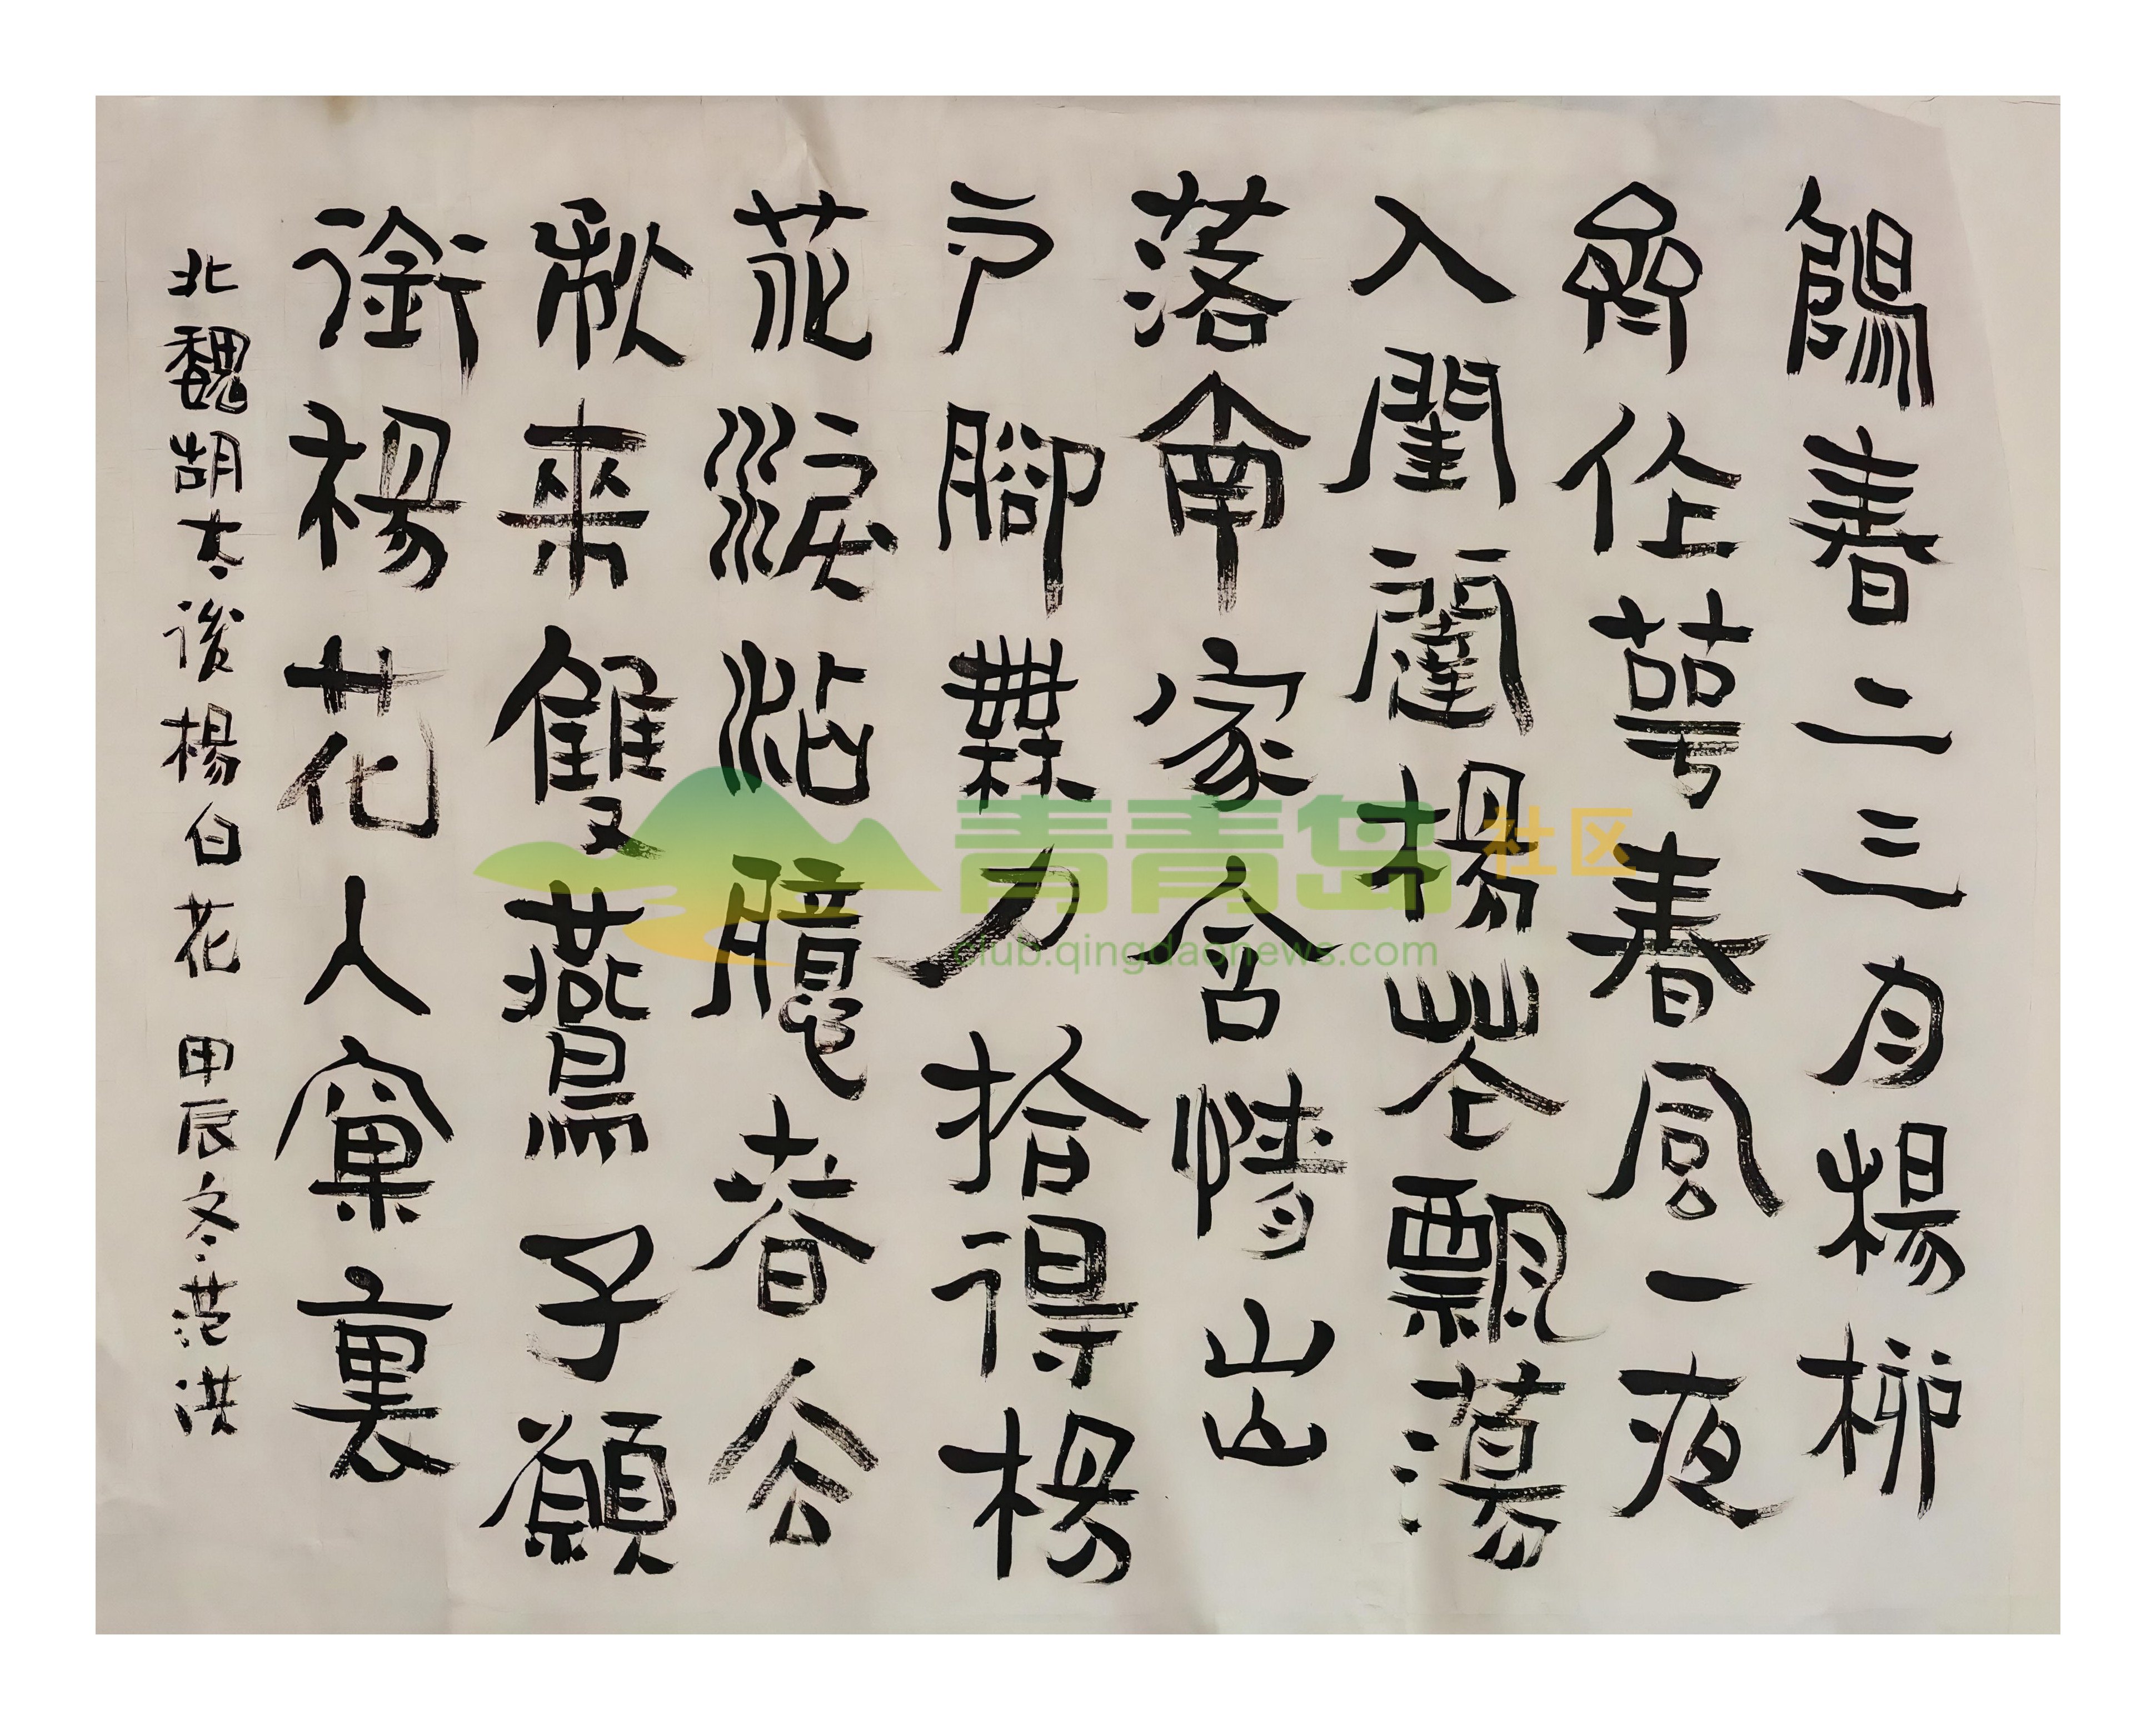 陽春二三月楊柳
齊作萼春風一夜
入閨闥楊花飄蕩
落南家含情出
戶腳無力拾得楊
花淚沾臆春去
秋來雙鷰子願
銜楊花入窠裏
北魏胡太後楊白花 甲辰冬范洪
青青岛社区
club.qingdaonews.com